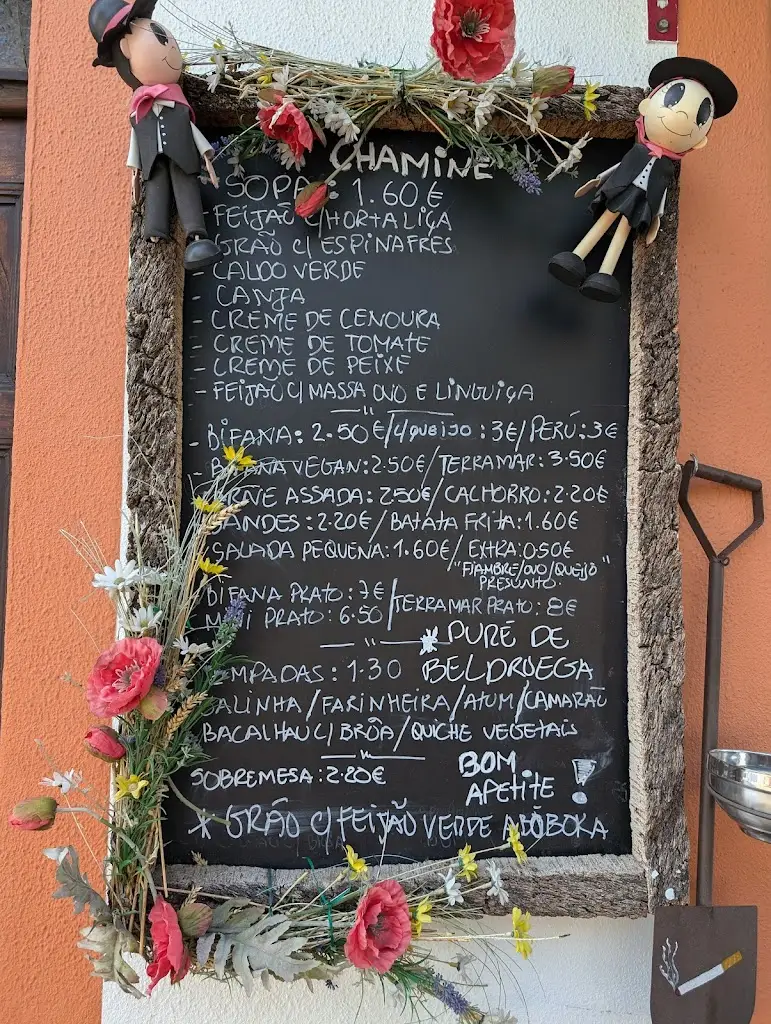 CHAMINÉ
SOPA: 1.60.€
- FEIJÃO C/HORTALIÇA
- GRÃO C/ ESPINAFRES
- CALDO VERDE
- CANJA
- CREME DE CENOURA
- CREME DE TOMATE
- CREME DE PEIXE
- FEIJÃO C/ MASSA OVO E LINGUIÇA
- BIFANA: 2.50€/C/QUEIJO: 3€/PERÚ: 3€
VEGAN: 2.50€/TERRAMAR: 3.50€
ASSADA: 2.50€/CACHORRO: 2.20€
2.20€/BATATA FRITA: 1.60€
SALADA PEQUENA: 1.60€/EXTRA: 0.50€
"FIAMBRE/OVO/QUEIJO"
PRESUNTO
BIFANA PRATO: 7€
PRATO: 6.50/TERRAMAR PRATO: 8€
* PURÉ DE
BELDROEGA
EMPADAS: 1.30
GALINHA/FARINHEIRA/ATUM/CAMARÃO
BACALHAU C/ BRÔA/QUICHE VEGETAIS
SOBREMESA: 2.20€
BOM
APETITE!
* GRÃO C/ FEIJÃO VERDE ABÓBORA